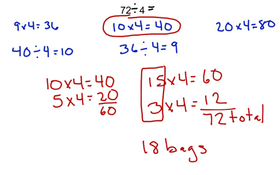 72÷4=
9x4=36 10x4=40 20x4=80
40÷4=10 36÷4=9
10x4=40 15x4=60
5x4=20 3x4=12
60 72 total
18 bags